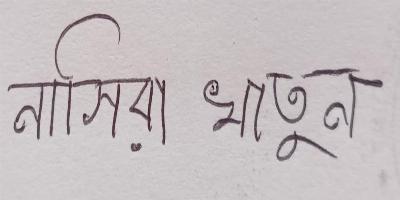 নাসিরা খাতুন